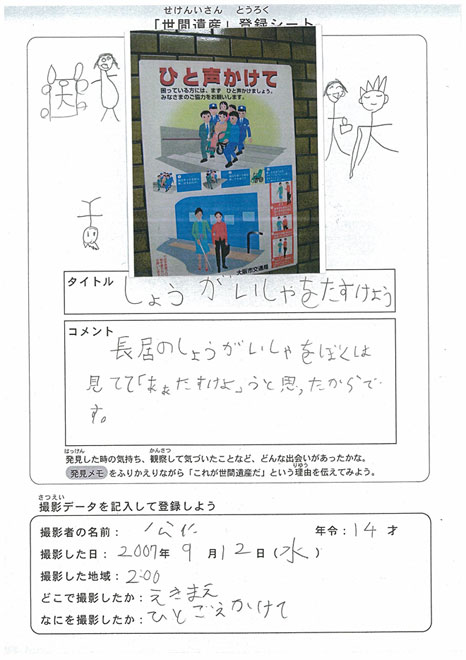 せけんいさん とうろく
「世間遺産」登録シート
ひと声かけて
困っている方には、まず ひと声かけましょう。
みなさまのご協力をお願いします。
大阪市交通局
タイトル
しょうがいしゃをたすけよう
コメント
長居のしょうがいしゃをぼくは
見てて「まぁたすけよ」うと思ったからで
す。
はっけん かんさつ
発見した時の気持ち、観察して気づいたことなど、どんな出会いがあったかな。
りゆう
発見メモ をふりかえりながら「これが世間遺産だ」という理由を伝えてみよう。
さつえい
撮影データを記入して登録しよう
撮影者の名前： 公仁 年令：14 才
撮影した日： 2007年 9 月 12日（水）
撮影した地域： 2:00
どこで撮影したか： えきまえ
なにを撮影したか： ひとごえかけて